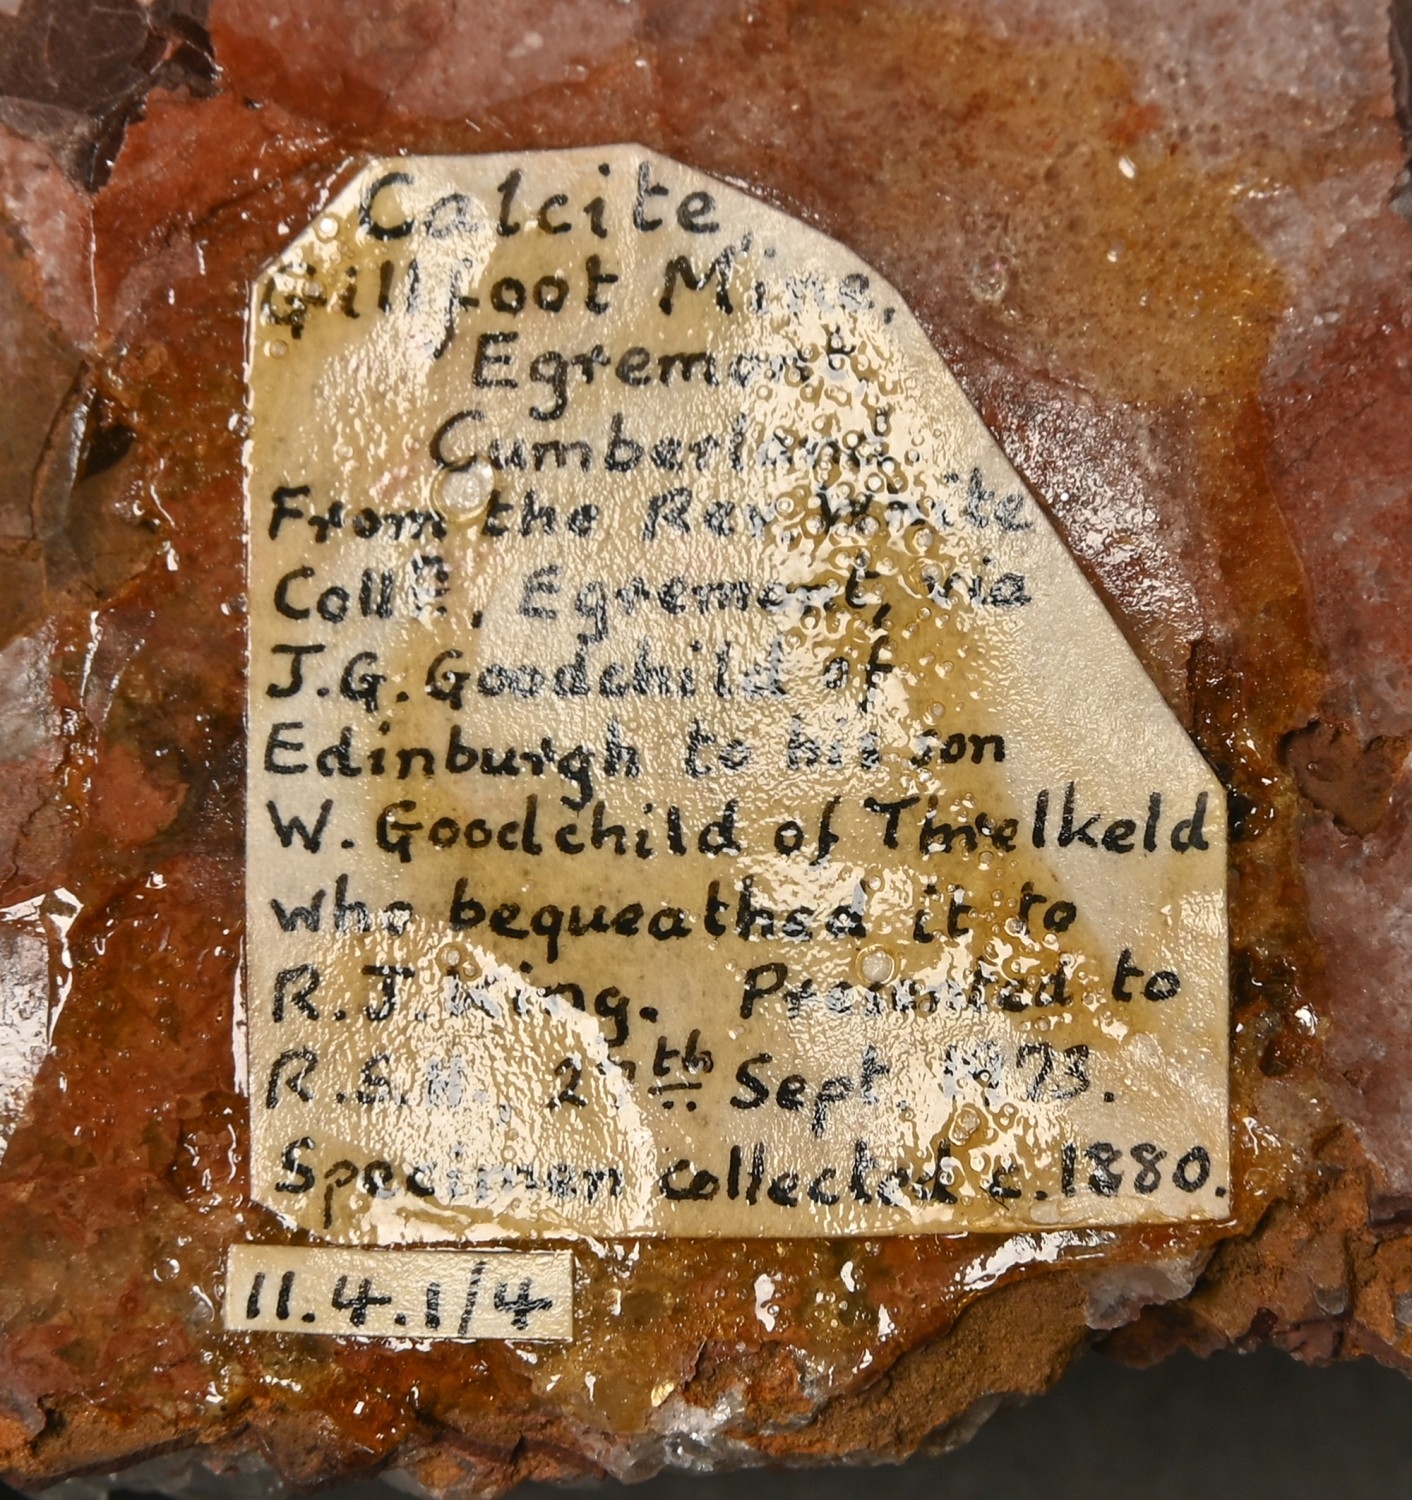 Calcite
Gillfoot Mine,
Egremont,
Cumberland.
From the Rev. White
Collⁿ, Egremont, via
J.G. Goodchild of
Edinburgh to his son
W. Goodchild of Threlkeld
who bequeathed it to
R.J. King. Presented to
Sept. 1973.
Specimen collected c.1880.
11.4.1/4